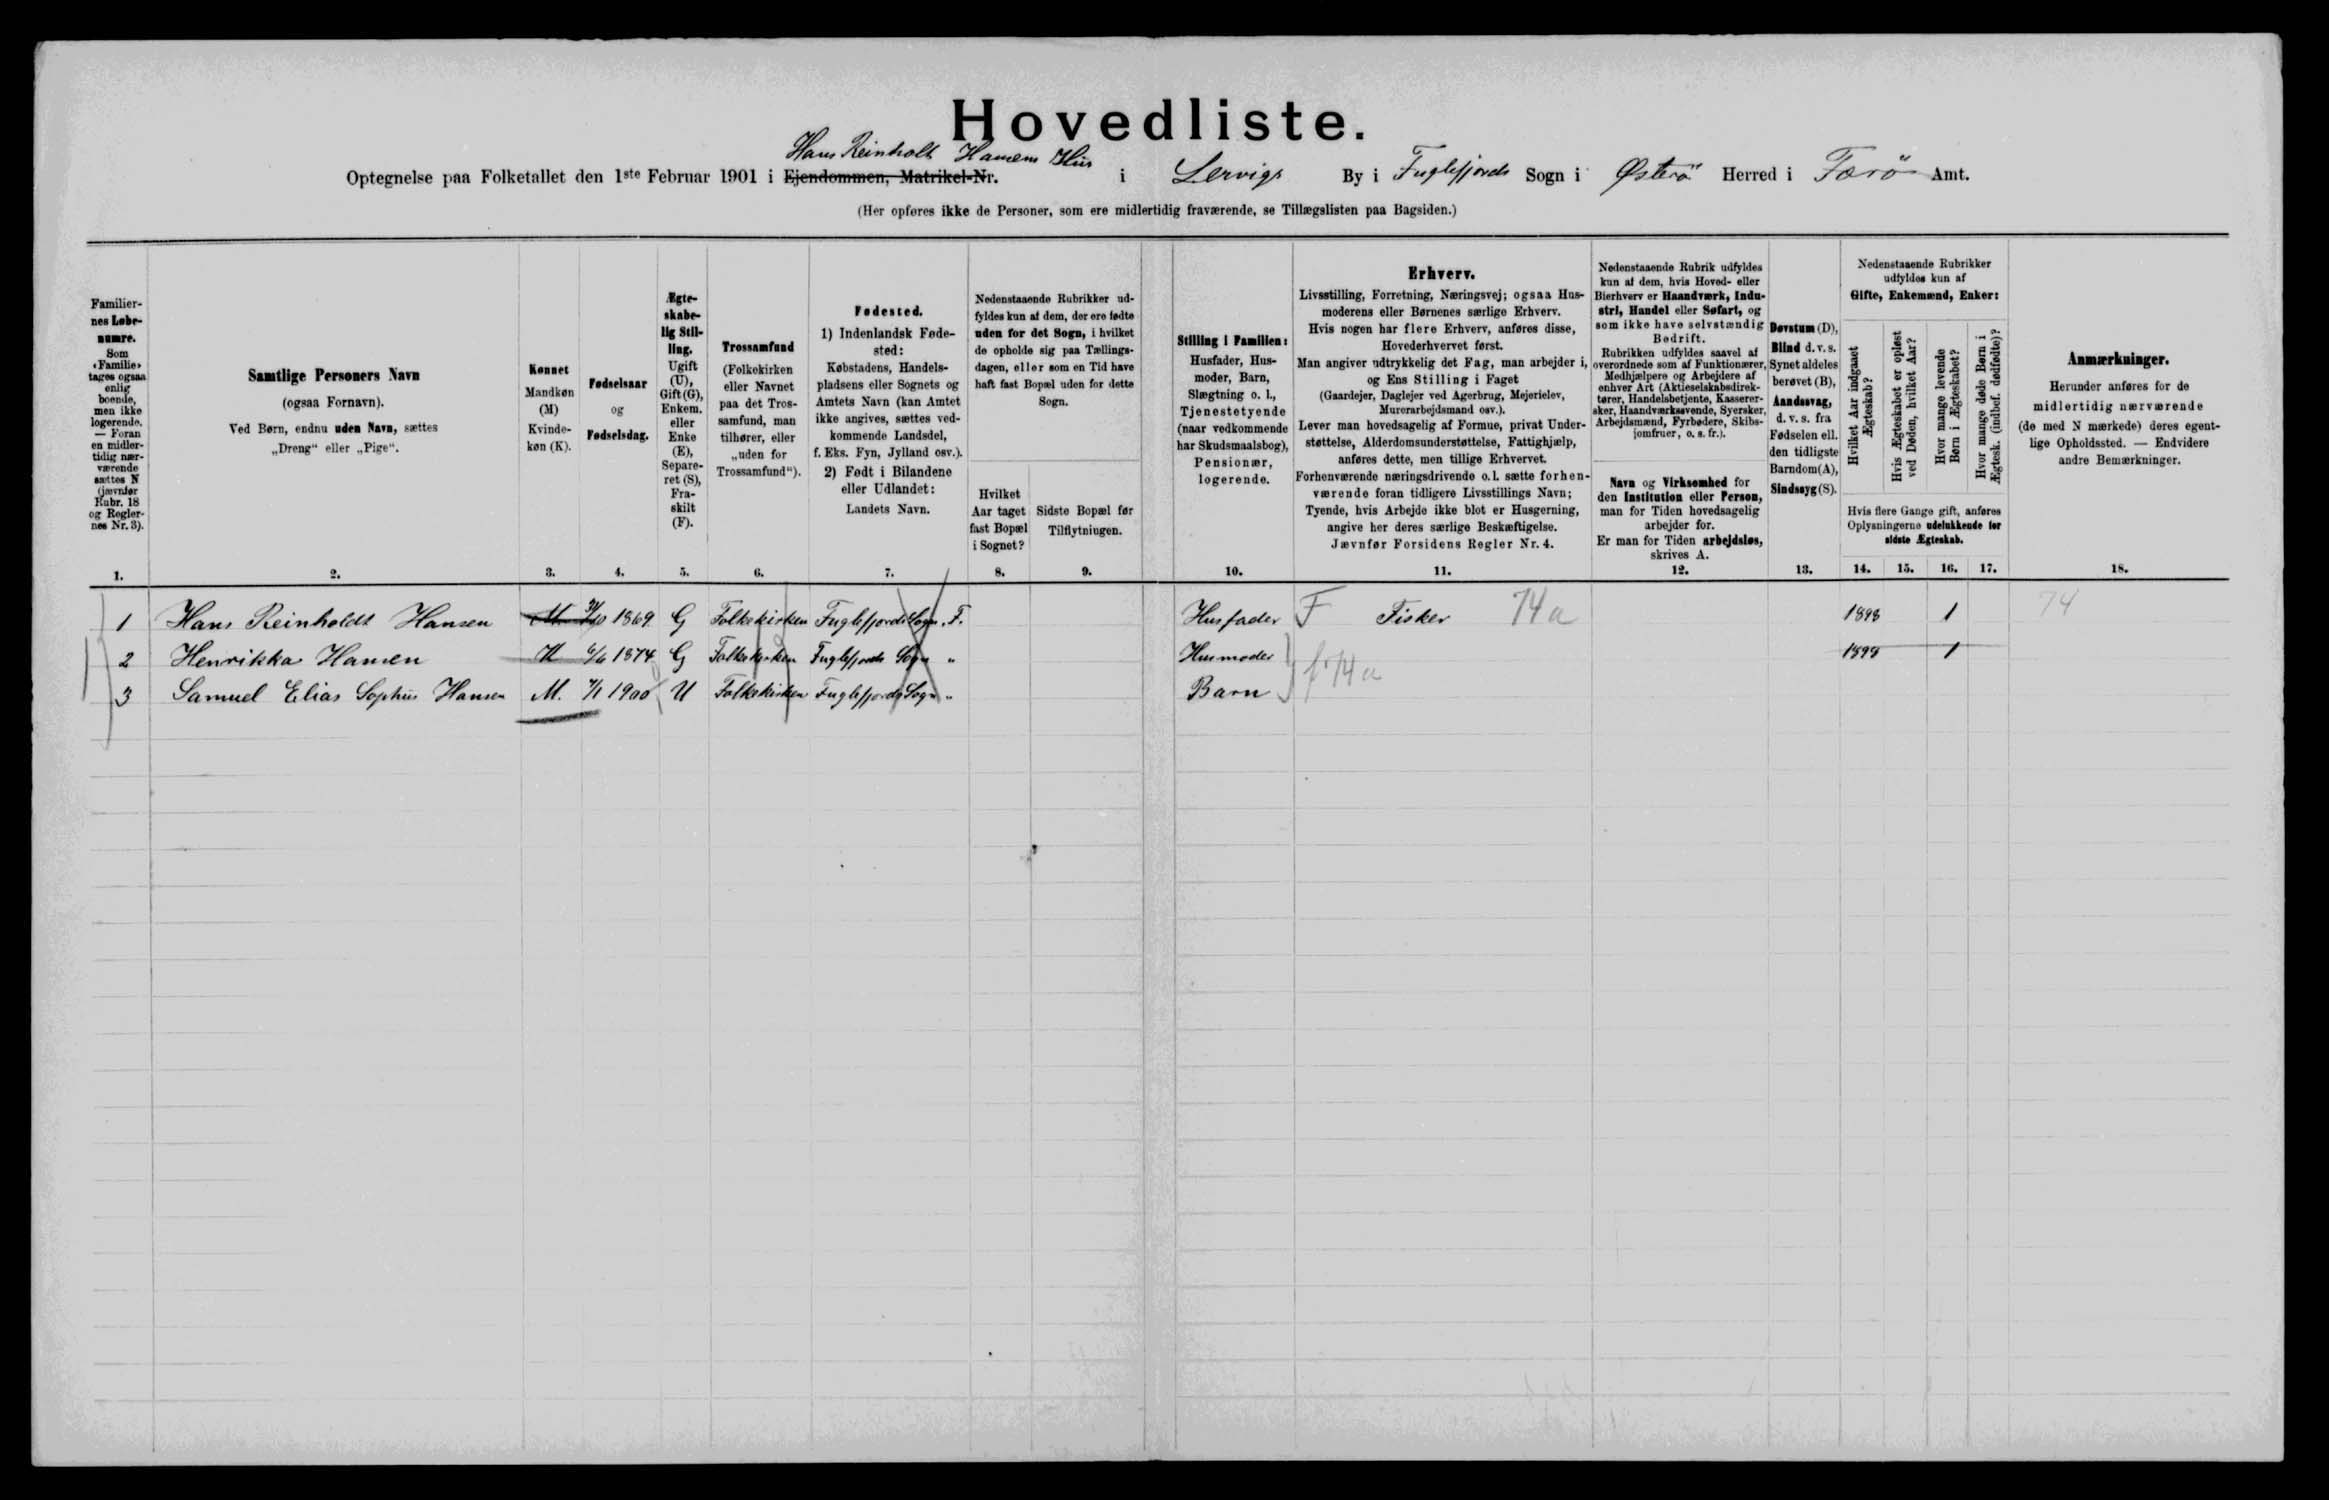 Hovedliste.
Hans Reinholt Hansens Hus
Optegnelse paa Folketallet den 1ste Februar 1901 i Ejendommen, Matrikel-Nr. i Lervigs By i Fuglefjords Sogn i Østerö Herred i Færö Amt.
(Her opføres ikke de Personer, som ere midlertidig fraværende, se Tillægslisten paa Bagsiden.)
Familier-
nes Løbe-
numre.
Som
«Familie»
tages ogsaa
enlig
boende,
men ikke
logerende.
— Foran
en midler-
tidig nær-
værende
sættes N
(jævnfør
Rubr. 18
og Regler-
nes Nr. 3).
1.
Samtlige Personers Navn
(ogsaa Fornavn).
Ved Børn, endnu uden Navn, sættes
„Dreng“ eller „Pige“.
2.
Kønnet
Mandkøn
(M)
Kvinde-
køn (K).
3.
Fødselsaar
og
Fødselsdag.
4.
Ægte-
skabe-
lig Stil-
ling.
Ugift
(U),
Gift (G),
Enkem.
eller
Enke
(E),
Separe-
ret (S),
Fra-
skilt
(F).
5.
Trossamfund
(Folkekirken
eller Navnet
paa det Tros-
samfund, man
tilhører, eller
„uden for
Trossamfund“).
6.
Fødested.
1) Indenlandsk Føde-
sted:
Købstadens, Handels-
pladsens eller Sognets og
Amtets Navn (kan Amtet
ikke angives, sættes ved-
kommende Landsdel,
f. Eks. Fyn, Jylland osv.).
2) Født i Bilandene
eller Udlandet:
Landets Navn.
7.
Nedenstaaende Rubrikker ud-
fyldes kun af dem, der ere fødte
uden for det Sogn, i hvilket
de opholde sig paa Tællings-
dagen, eller som en Tid have
haft fast Bopæl uden for dette
Sogn.
Hvilket
Aar taget
fast Bopæl
i Sognet?
8.
Sidste Bopæl før
Tilflytningen.
9.
Stilling i Familien:
Husfader, Hus-
moder, Barn,
Slægtning o. l.,
Tjenestetyende
(naar vedkommende
har Skudsmaalsbog),
Pensionær,
logerende.
10.
Erhverv.
Livsstilling, Forretning, Næringsvej; ogsaa Hus-
moderens eller Børnenes særlige Erhverv.
Hvis nogen har flere Erhverv, anføres disse,
Hovederhvervet først.
Man angiver udtrykkelig det Fag, man arbejder i,
og Ens Stilling i Faget
(Gaardejer, Daglejer ved Agerbrug, Mejerielev,
Murerarbejdsmand osv.).
Lever man hovedsagelig af Formue, privat Under-
støttelse, Alderdomsunderstøttelse, Fattighjælp,
anføres dette, men tillige Erhvervet.
Forhenværende næringsdrivende o. l. sætte forhen-
værende foran tidligere Livsstillings Navn;
Tyende, hvis Arbejde ikke blot er Husgerning,
angive her deres særlige Beskæftigelse.
Jævnfør Forsidens Regler Nr. 4.
11.
Nedenstaaende Rubrik udfyldes
kun af dem, hvis Hoved- eller
Bierhverv er Haandværk, Indu-
stri, Handel eller Søfart, og
som ikke have selvstændig
Bedrift.
Rubrikken udfyldes saavel af
overordnede som af Funktionærer,
Medhjælpere og Arbejdere af
enhver Art (Aktieselskabsdirek-
tører, Handelsbetjente, Kasserer-
sker, Haandværkssvende, Syersker,
Arbejdsmænd, Fyrbødere, Skibs-
jomfruer, o. s. fr.).
Navn og Virksomhed for
den Institution eller Person,
man for Tiden hovedsagelig
arbejder for.
Er man for Tiden arbejdsløs,
skrives A.
12.
Døvstum (D),
Blind d. v. s.
Synet aldeles
berøvet (B),
Aandssvag,
d. v. s. fra
Fødselen ell.
den tidligste
Barndom (A),
Sindssyg (S).
13.
Nedenstaaende Rubrikker
udfyldes kun af
Gifte, Enkemænd, Enker:
Hvilket Aar indgaaet
Ægteskab?
Hvis Ægteskabet er opløst
ved Døden, hvilket Aar?
Hvor mange levende
Børn i Ægteskabet?
Hvor mange døde Børn i
Ægtesk. (indbef. dødfødte)?
Hvis flere Gange gift, anføres
Oplysningerne udelukkende for
sidste Ægteskab.
14. 15. 16. 17.
Anmærkninger.
Herunder anføres for de
midlertidig nærværende
(de med N mærkede) deres egent-
lige Opholdssted. — Endvidere
andre Bemærkninger.
18.
1 Hans Reinholdt Hansen M 1869 G Folkekirken Fuglefjords Sogn, F. Husfader F Fisker 74a 1898 1 74
2 Henrikka Hansen K 1874 G Folkekirken Fuglefjords Sogn „ Husmoder 1898 1
f 74a
3 Samuel Elias Sophus Hansen M. 1900 U Folkekirken Fuglefjords Sogn „ Barn